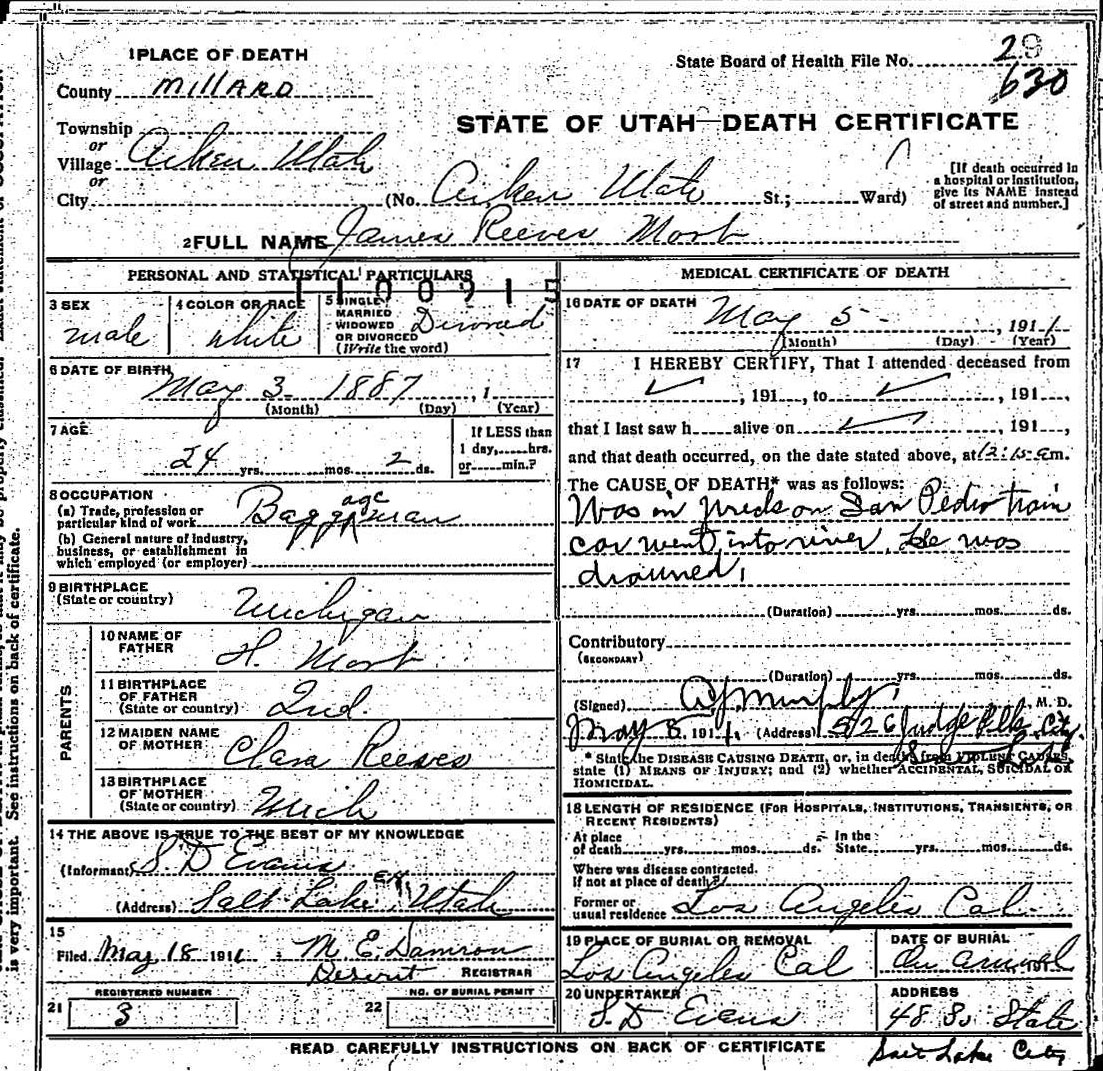 1 PLACE OF DEATH
State Board of Health File No. 29
630
County Millard
STATE OF UTAH—DEATH CERTIFICATE
Township
or
Village Aiken Utah
or
City (No. Aiken Utah St.; Ward)
[If death occurred in
a hospital or institution,
give its NAME instead
of street and number.]
2 FULL NAME James Reeves Mort
PERSONAL AND STATISTICAL PARTICULARS
1100915
3 SEX
male
4 COLOR OR RACE
white
5 SINGLE
MARRIED
WIDOWED
OR DIVORCED
(Write the word)
Divorced
6 DATE OF BIRTH
May 3 1887, 1
(Month) (Day) (Year)
7 AGE
24 yrs. mos. 2 ds.
If LESS than
1 day, hrs.
or min.?
8 OCCUPATION
(a) Trade, profession or
particular kind of work
Baggage man
(b) General nature of industry,
business, or establishment in
which employed (or employer)
9 BIRTHPLACE
(State or country)
Michigan
PARENTS
10 NAME OF
FATHER
H. Mort
11 BIRTHPLACE
OF FATHER
(State or country)
Ind.
12 MAIDEN NAME
OF MOTHER
Clara Reeves
13 BIRTHPLACE
OF MOTHER
(State or country)
Mich
14 THE ABOVE IS TRUE TO THE BEST OF MY KNOWLEDGE
(Informant) S. D Evans
(Address) Salt Lake City Utah
15
Filed May 18 1911 M. E. Damron
Deseret REGISTRAR
21 REGISTERED NUMBER
3
22 NO. OF BURIAL PERMIT
MEDICAL CERTIFICATE OF DEATH
16 DATE OF DEATH
May 5, 1911
(Month) (Day) (Year)
17 I HEREBY CERTIFY, That I attended deceased from
, 191 , to , 191 ,
that I last saw h alive on , 191 ,
and that death occurred, on the date stated above, at 12:15 a m.
The CAUSE OF DEATH* was as follows:
Was in wreck on San Pedro train
car went into river. He was
drowned.
(Duration) yrs. mos. ds.
Contributory
(SECONDARY)
(Duration) yrs. mos. ds.
(Signed) A J Murphy, M. D.
May 8, 1911. (Address) 526 Judge Bld. City
* State the DISEASE CAUSING DEATH, or, in deaths from VIOLENT CAUSES,
state (1) MEANS OF INJURY; and (2) whether ACCIDENTAL, SUICIDAL OR
HOMICIDAL.
18 LENGTH OF RESIDENCE (FOR HOSPITALS, INSTITUTIONS, TRANSIENTS, OR
RECENT RESIDENTS)
At place
of death yrs. mos. ds.
In the
State yrs. mos. ds.
Where was disease contracted.
If not at place of death?
Former or
usual residence Los Angeles Cal.
19 PLACE OF BURIAL OR REMOVAL
Los Angeles Cal
DATE OF BURIAL
On arrival 191
20 UNDERTAKER
S. D Evans
ADDRESS
48 So State
Salt Lake City
READ CAREFULLY INSTRUCTIONS ON BACK OF CERTIFICATE
is very important. See instructions on back of certificate.